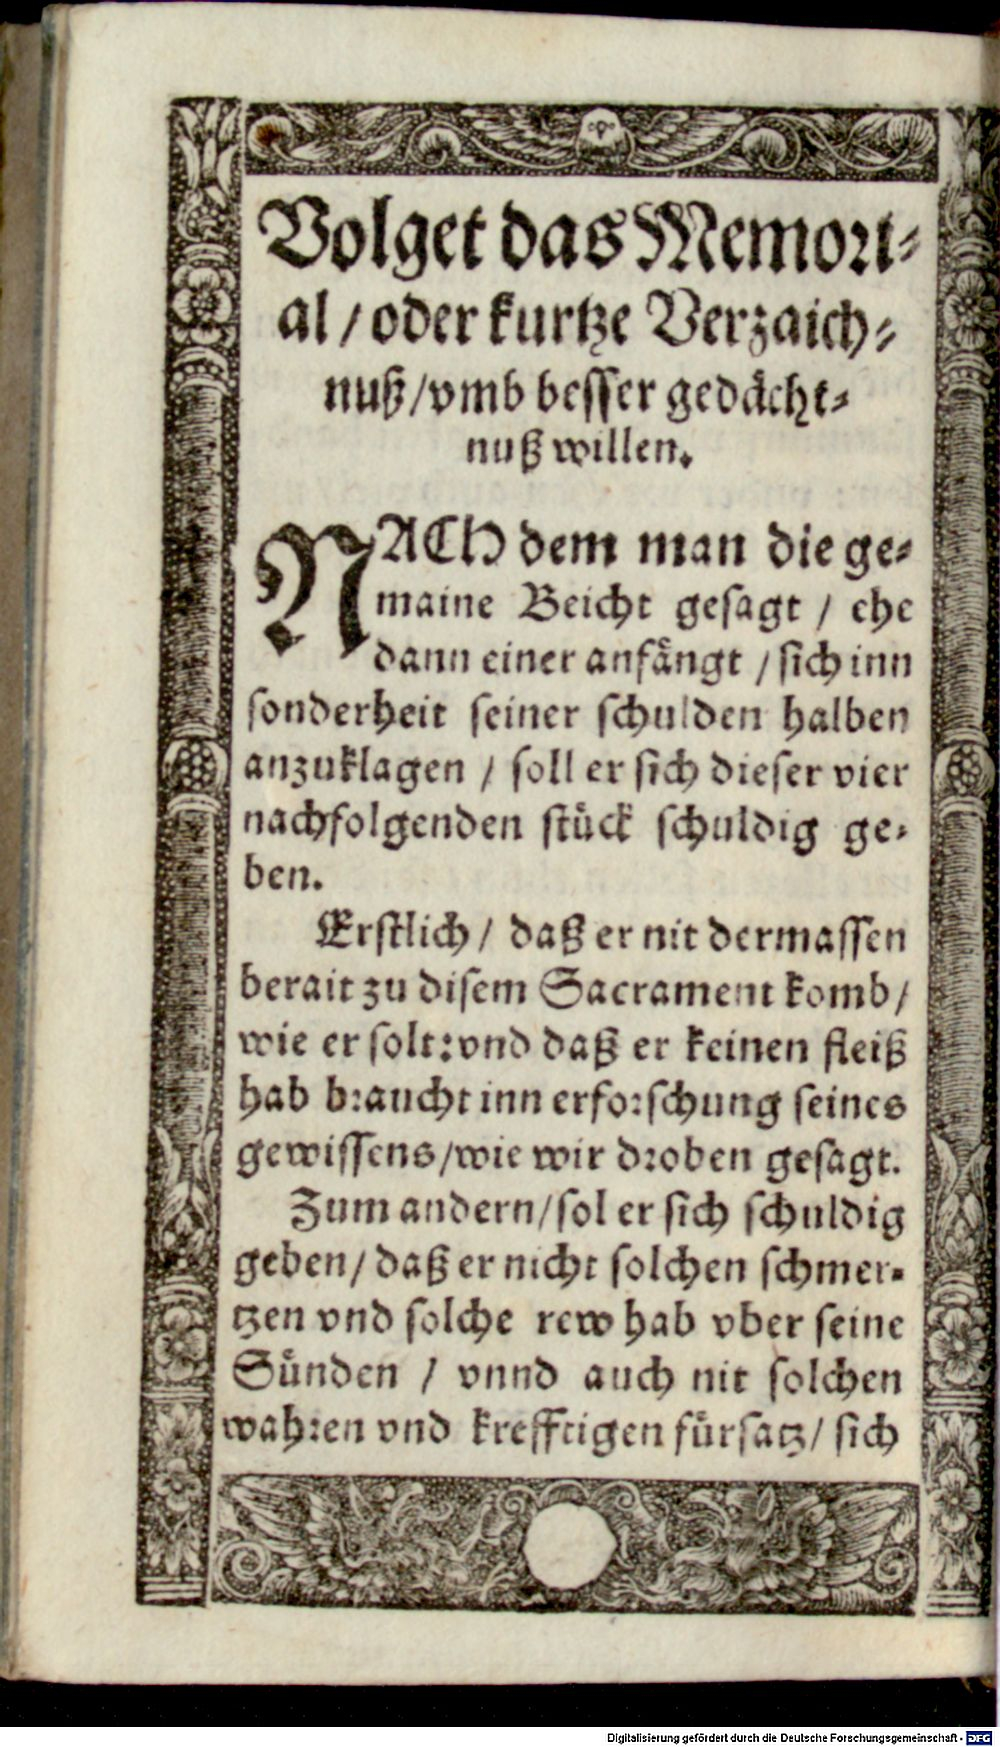 Volget das Memori-
al / oder kurtze Verzaich-
nuß / vmb besser gedächt-
nuß willen.
NACH dem man die ge-
maine Beicht gesagt / ehe
dann einer anfängt / sich inn
sonderheit seiner schulden halben
anzuklagen / soll er sich dieser vier
nachfolgenden stück schuldig ge-
ben.
Erstlich / daß er nit dermassen
berait zu disem Sacrament komb /
wie er solt: vnd daß er keinen fleiß
hab braucht inn erforschung seines
gewissens / wie wir droben gesagt.
Zum andern / sol er sich schuldig
geben / daß er nicht solchen schmer-
tzen vnd solche rew hab vber seine
Sünden / vnnd auch nit solchen
wahren vnd krefftigen fürsatz / sich
Digitalisierung gefördert durch die Deutsche Forschungsgemeinschaft - DFG